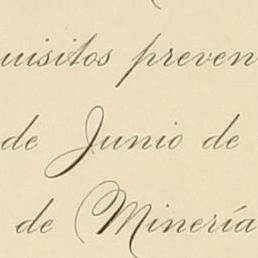 uisitos preven
de Junio de
de Minería